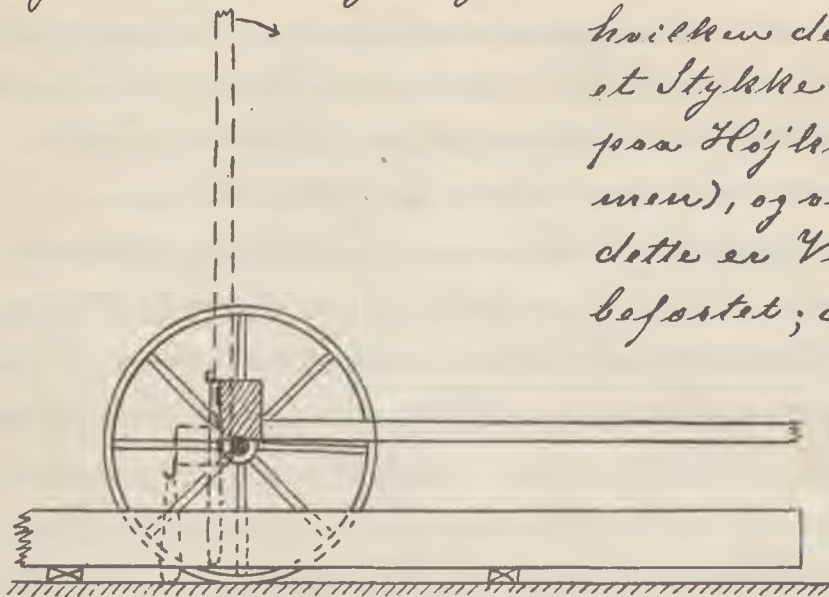 hvilken de
et Stykke
paa Højk
men), og v
dette er V
befæstet;